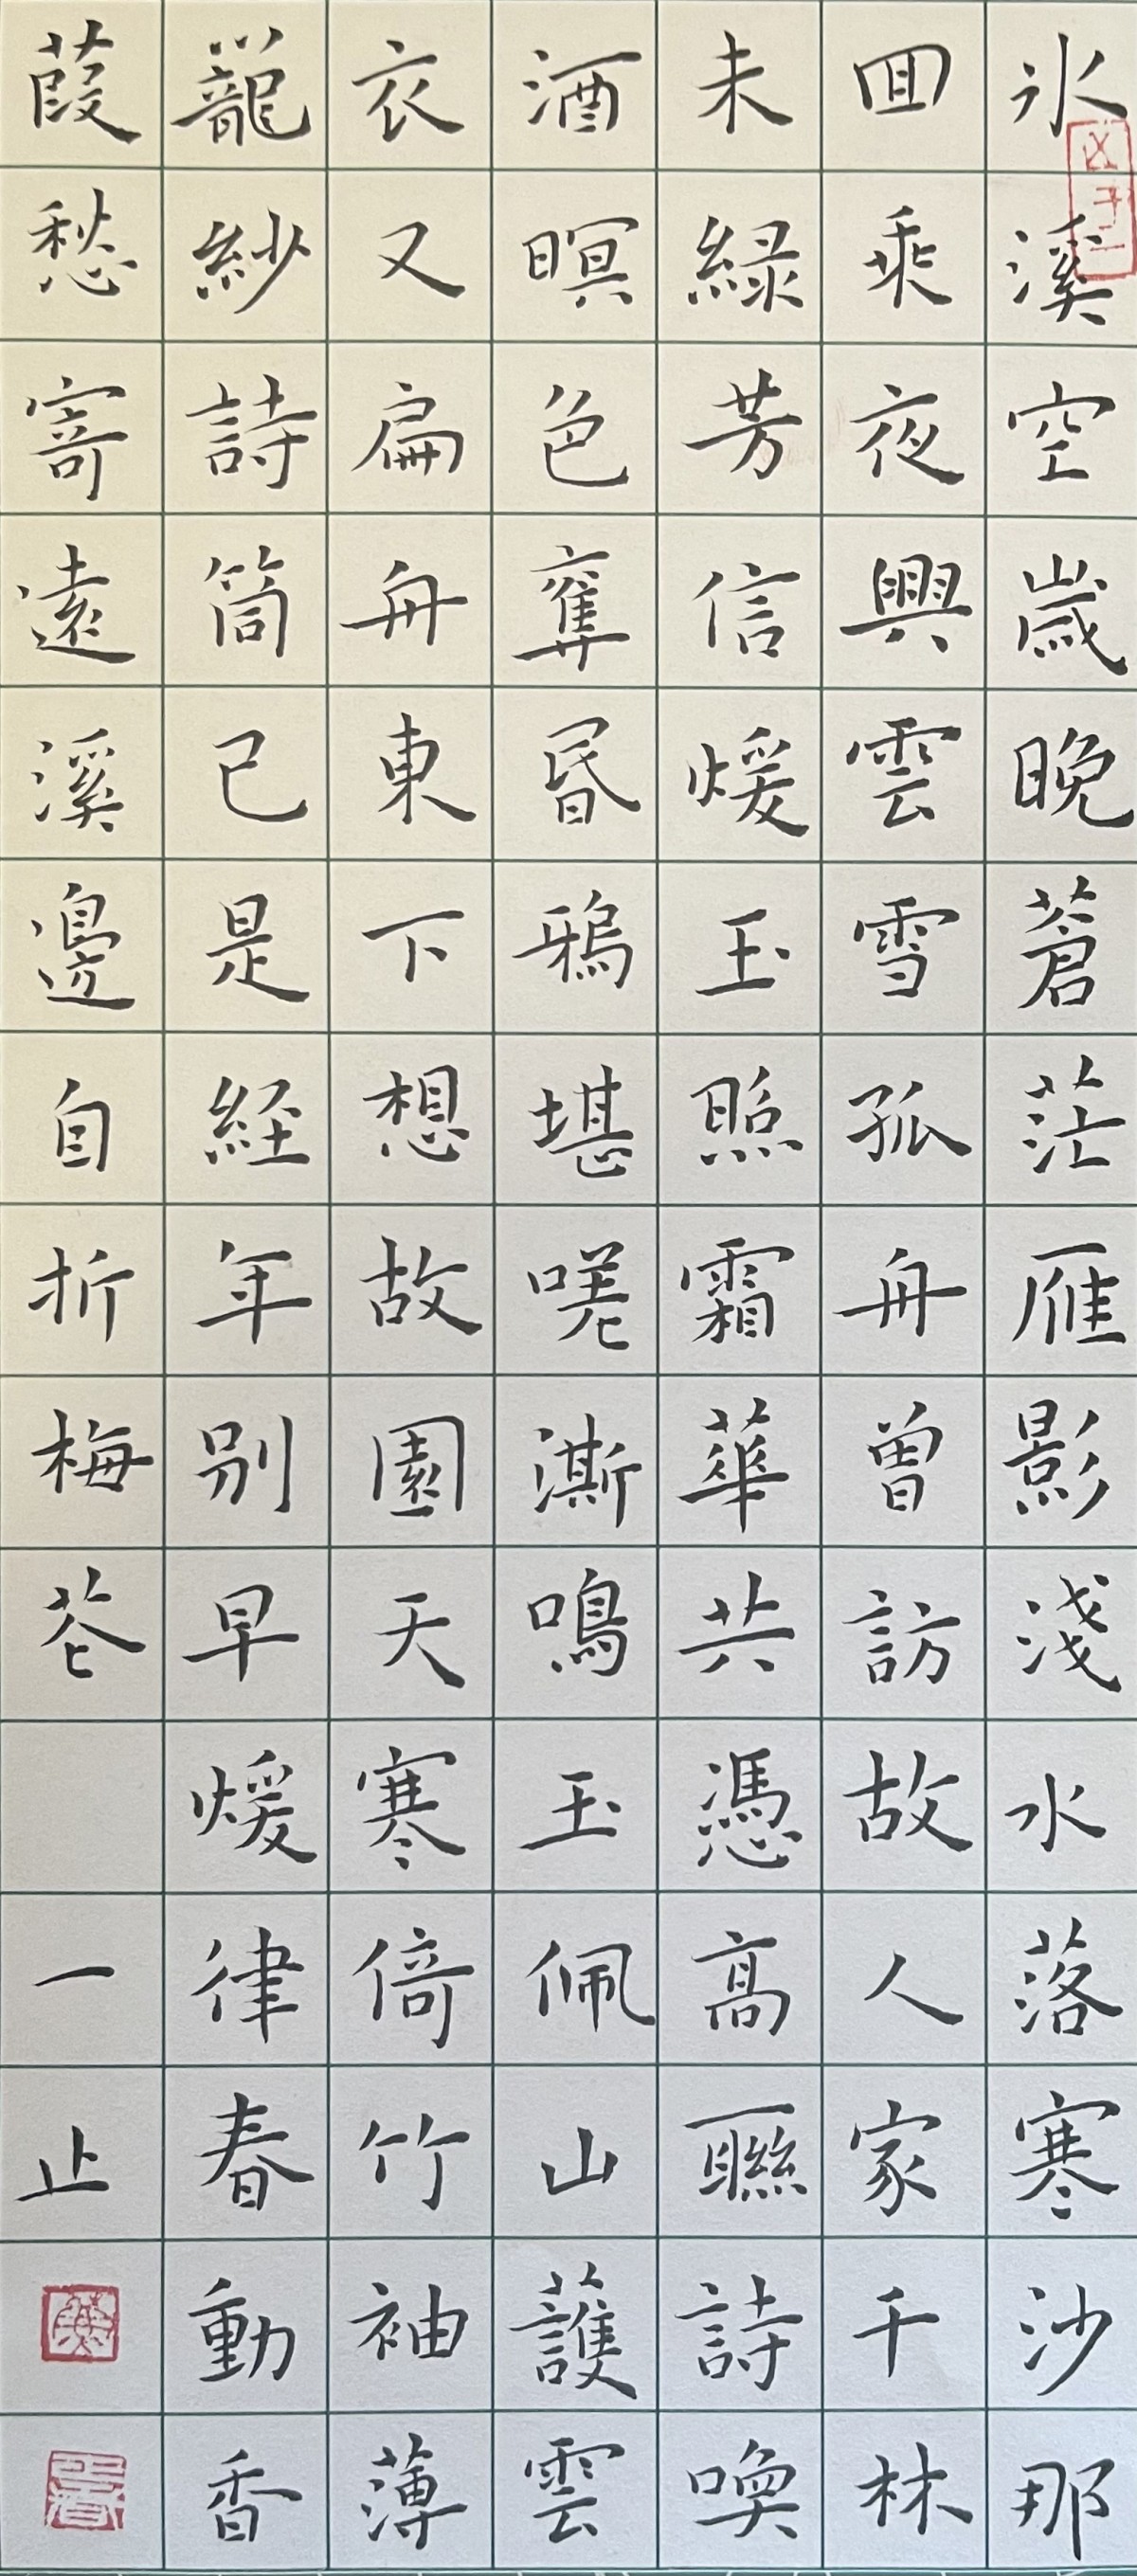 氷溪空嵗晚蒼茫雁影淺水落寒沙那
囬乘夜興雲雪孤舟曾訪故人家千林
未綠芳信煖玉照霜華共憑高聯詩喚
酒暝色奪昏鴉堪嗟澌鳴玉佩山護雲
衣又扁舟東下想故園天寒倚竹袖薄
籠紗詩筒已是経年別早煖律春動香
葭愁寄遠溪邊自折梅苍
一止